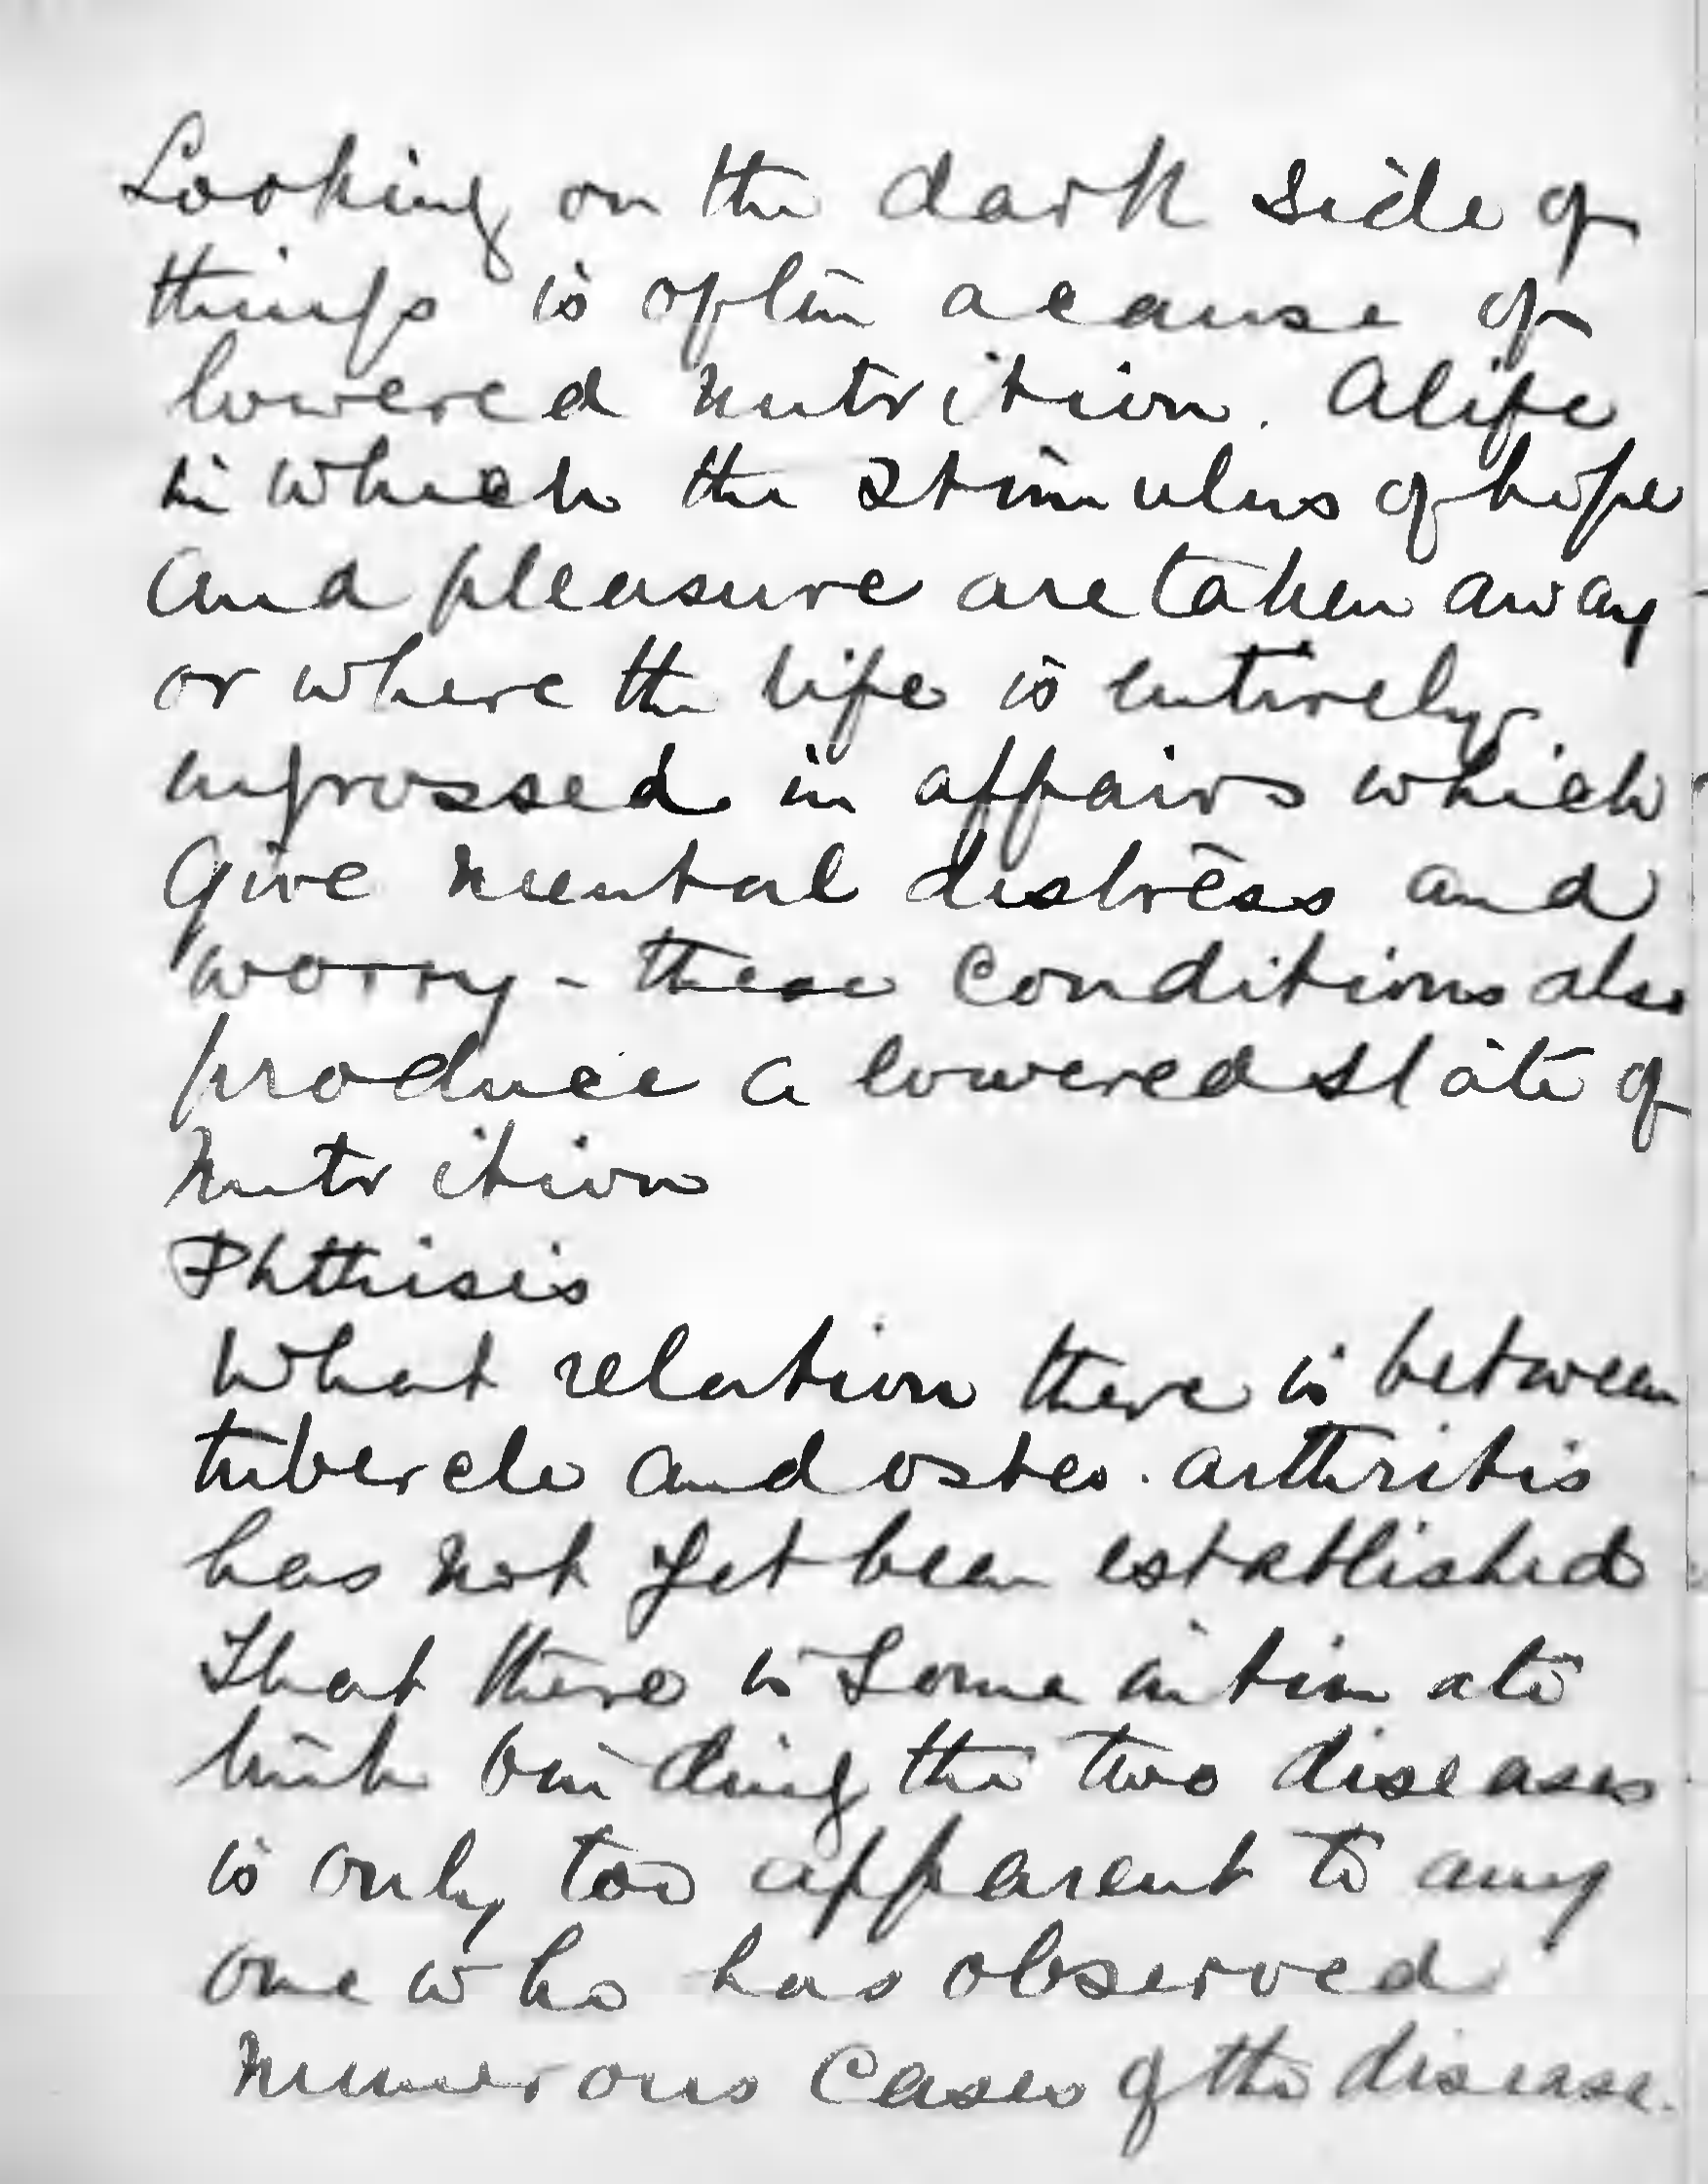 Looking on the dark side of
things is often a cause of
lowered nutrition. A life
in which the stimulus of hope
and pleasure are taken away
or where the life is entirely
engrossed in affairs which
give mental distress and
worry - these conditions also
produce a lowered state of
nutrition
Phthisis
What relation there is between
tubercle and osteo-arthritis
has not yet been established
That there is some intimate
link binding the two diseases
is only too apparent to any
one who has observed
numerous cases of the disease.